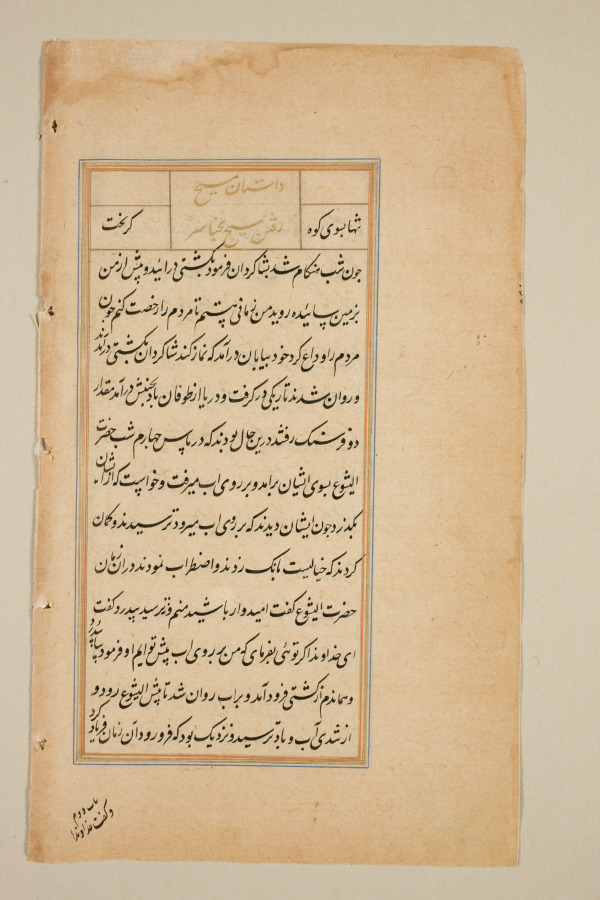 داستان مسیح
تنها بسوی کوه
رفتن مسیح
کریخت
جون شب هنکام شد بشاکردان فرمود بکشتی درائید و پیش از من
بزمین بسائیده روید من زمانی هستم تا مردم را رخصت کنم جون
مردم را وداع کرد خود بیابان درآمد که نماز کند شاکردان بکشتی درآمدند
و روان شدند تاریکی درکرفت و دریا از طوفان باد بجنبش درآمد مقدار
دو فرسنک رفتند درین حال بودند که در پاس چهارم شب حضرت
الیشوع بسوی ایشان برآمد و بر روی اب میرفت و خواست که از ایشان
بکذرد جون ایشان دیدند که بر روی اب میرود ترسیدند و کمان
کردند که خیالیست بانک زدند و اضطراب نمودند دران زمان
حضرت الیشوع کفت امیدوار باشید منم و نترسید پیدرو کفت
ای خداوند اکر توئی بفرمای که من بر روی اب پیش تو ایم او فرمود بیا پیدرو
و هماندم از کشتی فرود آمد و بر اب روان شد تا پیش الیشوع رود و
از شدی آب و باد ترسید و نزدیک بود که فرو رود آن زمان فریاد کرد
باب دوم
و کفت خداوندا